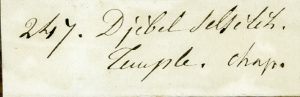 247. Djebel Selsilih.
Temple. chap.